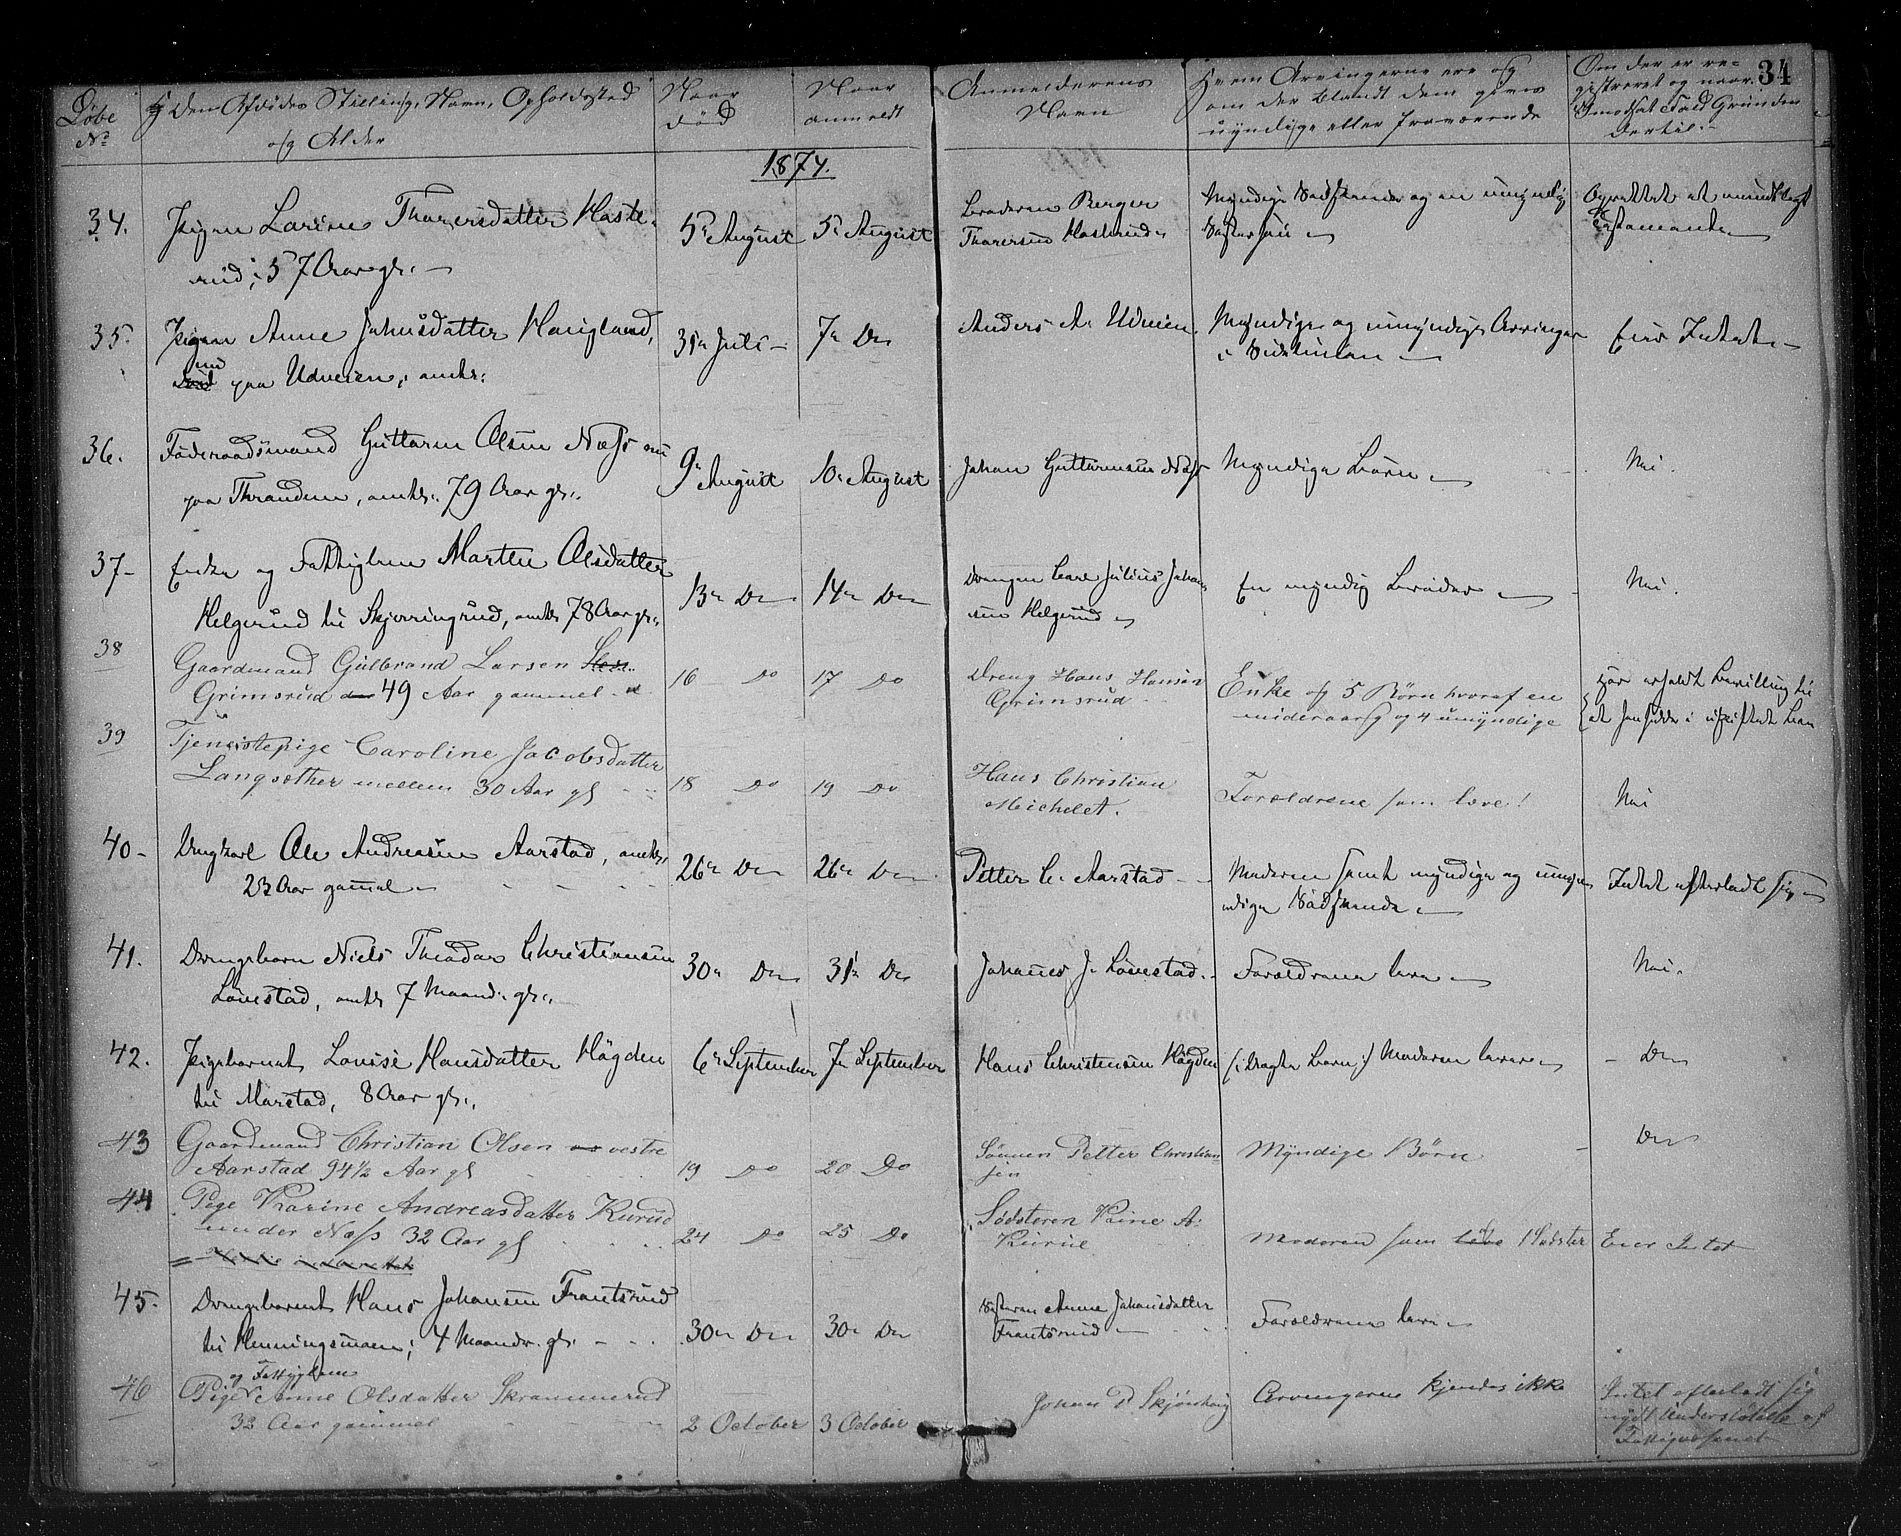 34
Løbe
No
Den Afdødes Stilling, Navn, Opholdssted
og Alder
Naar
død
Naar
anmeldt
Anmelderens
Navn
Hvem Arvingerne ere og
om der blandt dem gives
umyndige eller fraværende
Om der er re-
gistreret og naar.
Imodsat Fald Grunden
dertil.
1874.
34. Pigen Larine Thoresdatter Haste-
rud, 57 Aar gl.
5 August 5 August
Broderen Berger
Thoresen Hasterud
Myndige Sødskende og en umyndig
Søstersøn
Oprettet et mundtligt
Testamente
35. Pigen Anne Johnsdatter Haugland,
nu paa Udveien, omtr.
31 Juli 7 Do
Anders A. Udveien
Myndige og umyndige Arvinger
i Sidelinien
Eier Intet
36. Føderaadsmand Guttorm Olsen Næss nu
paa Thranden, omtr. 79 Aar gl.
9 August 10 August
Johan Guttormsen Næss
Myndige Børn
Nei.
37 Enke og Fattiglem Marthe Olsdatter
Helgerud til Skjerringrud, omtr. 78 Aar gl.
13 Do 14 Do
Drengen Carl Julius Johan-
sen Helgerud
En myndig Broder
Nei.
38 Gaardmand Gulbrand Larsen
Grimsrud 49 Aar gammel
16 Do 17 Do
Dreng Hans Hansen
Grimsrud
Enke og 5 Børn hvoraf en
mideraarig og 4 umyndige
Har erholdt Bevilling til
at hensidde i uskiftet Bo
39 Tjenistepige Caroline Jacobsdatter
Langsether mellem 30 Aar gl
18 Do 19 Do
Hans Christian
Michelet.
Forældrene som leve!
Nei
40 Ungkarl Ole Andreasen Aarstad, omtr.
23 Aar gammel
26 Do 26 Do
Petter C. Aarstad
Moderen samt myndige og umyn-
dige Sødskende
Intet efterladt sig
41. Drengebarn Niels Theodor Christiansen
Lønestad, omtr. 7 Maand. gl.
30 Do 31 Do
Johannes J. Lønestad
Forældrene leve
Nei.
42. Pigebarnet Louise Hansdatter Høgden
til Marstad, 8 Aar gl.
6 September 7 September
Hans Christensen Høgden
(: Ægte Barn :) Moderen lever
Do
43 Gaardmand Christian Olsen vestre
Aarstad 94½ Aar gl
19 Do 20 Do
Sønnen Petter Christian-
sen
Myndige Børn
Do
44 Pige Karine Andreasdatter Kurud
under Næss 32 Aar gl
24 Do 25 Do
Sødsteren Karine A.
Moderen som 1 Sødster
Eier Intet
45. Drengebarnet Hans Johansen Frantsrud
til Henningsmoen, 4 Maander gl.
30 Do 30 Do
Søsteren Anne Johansdatter
Frantsrud
Forældrene leve
46 Pige og Fattiglem Anne Olsdatter Skrammerud
32 Aar gammel
2 October 3 October
Johan P Skjønhaug
Arvingerne kjendes ikke
Intet efterladt sig
nydt Understøttelse af
Fattigvæsenet